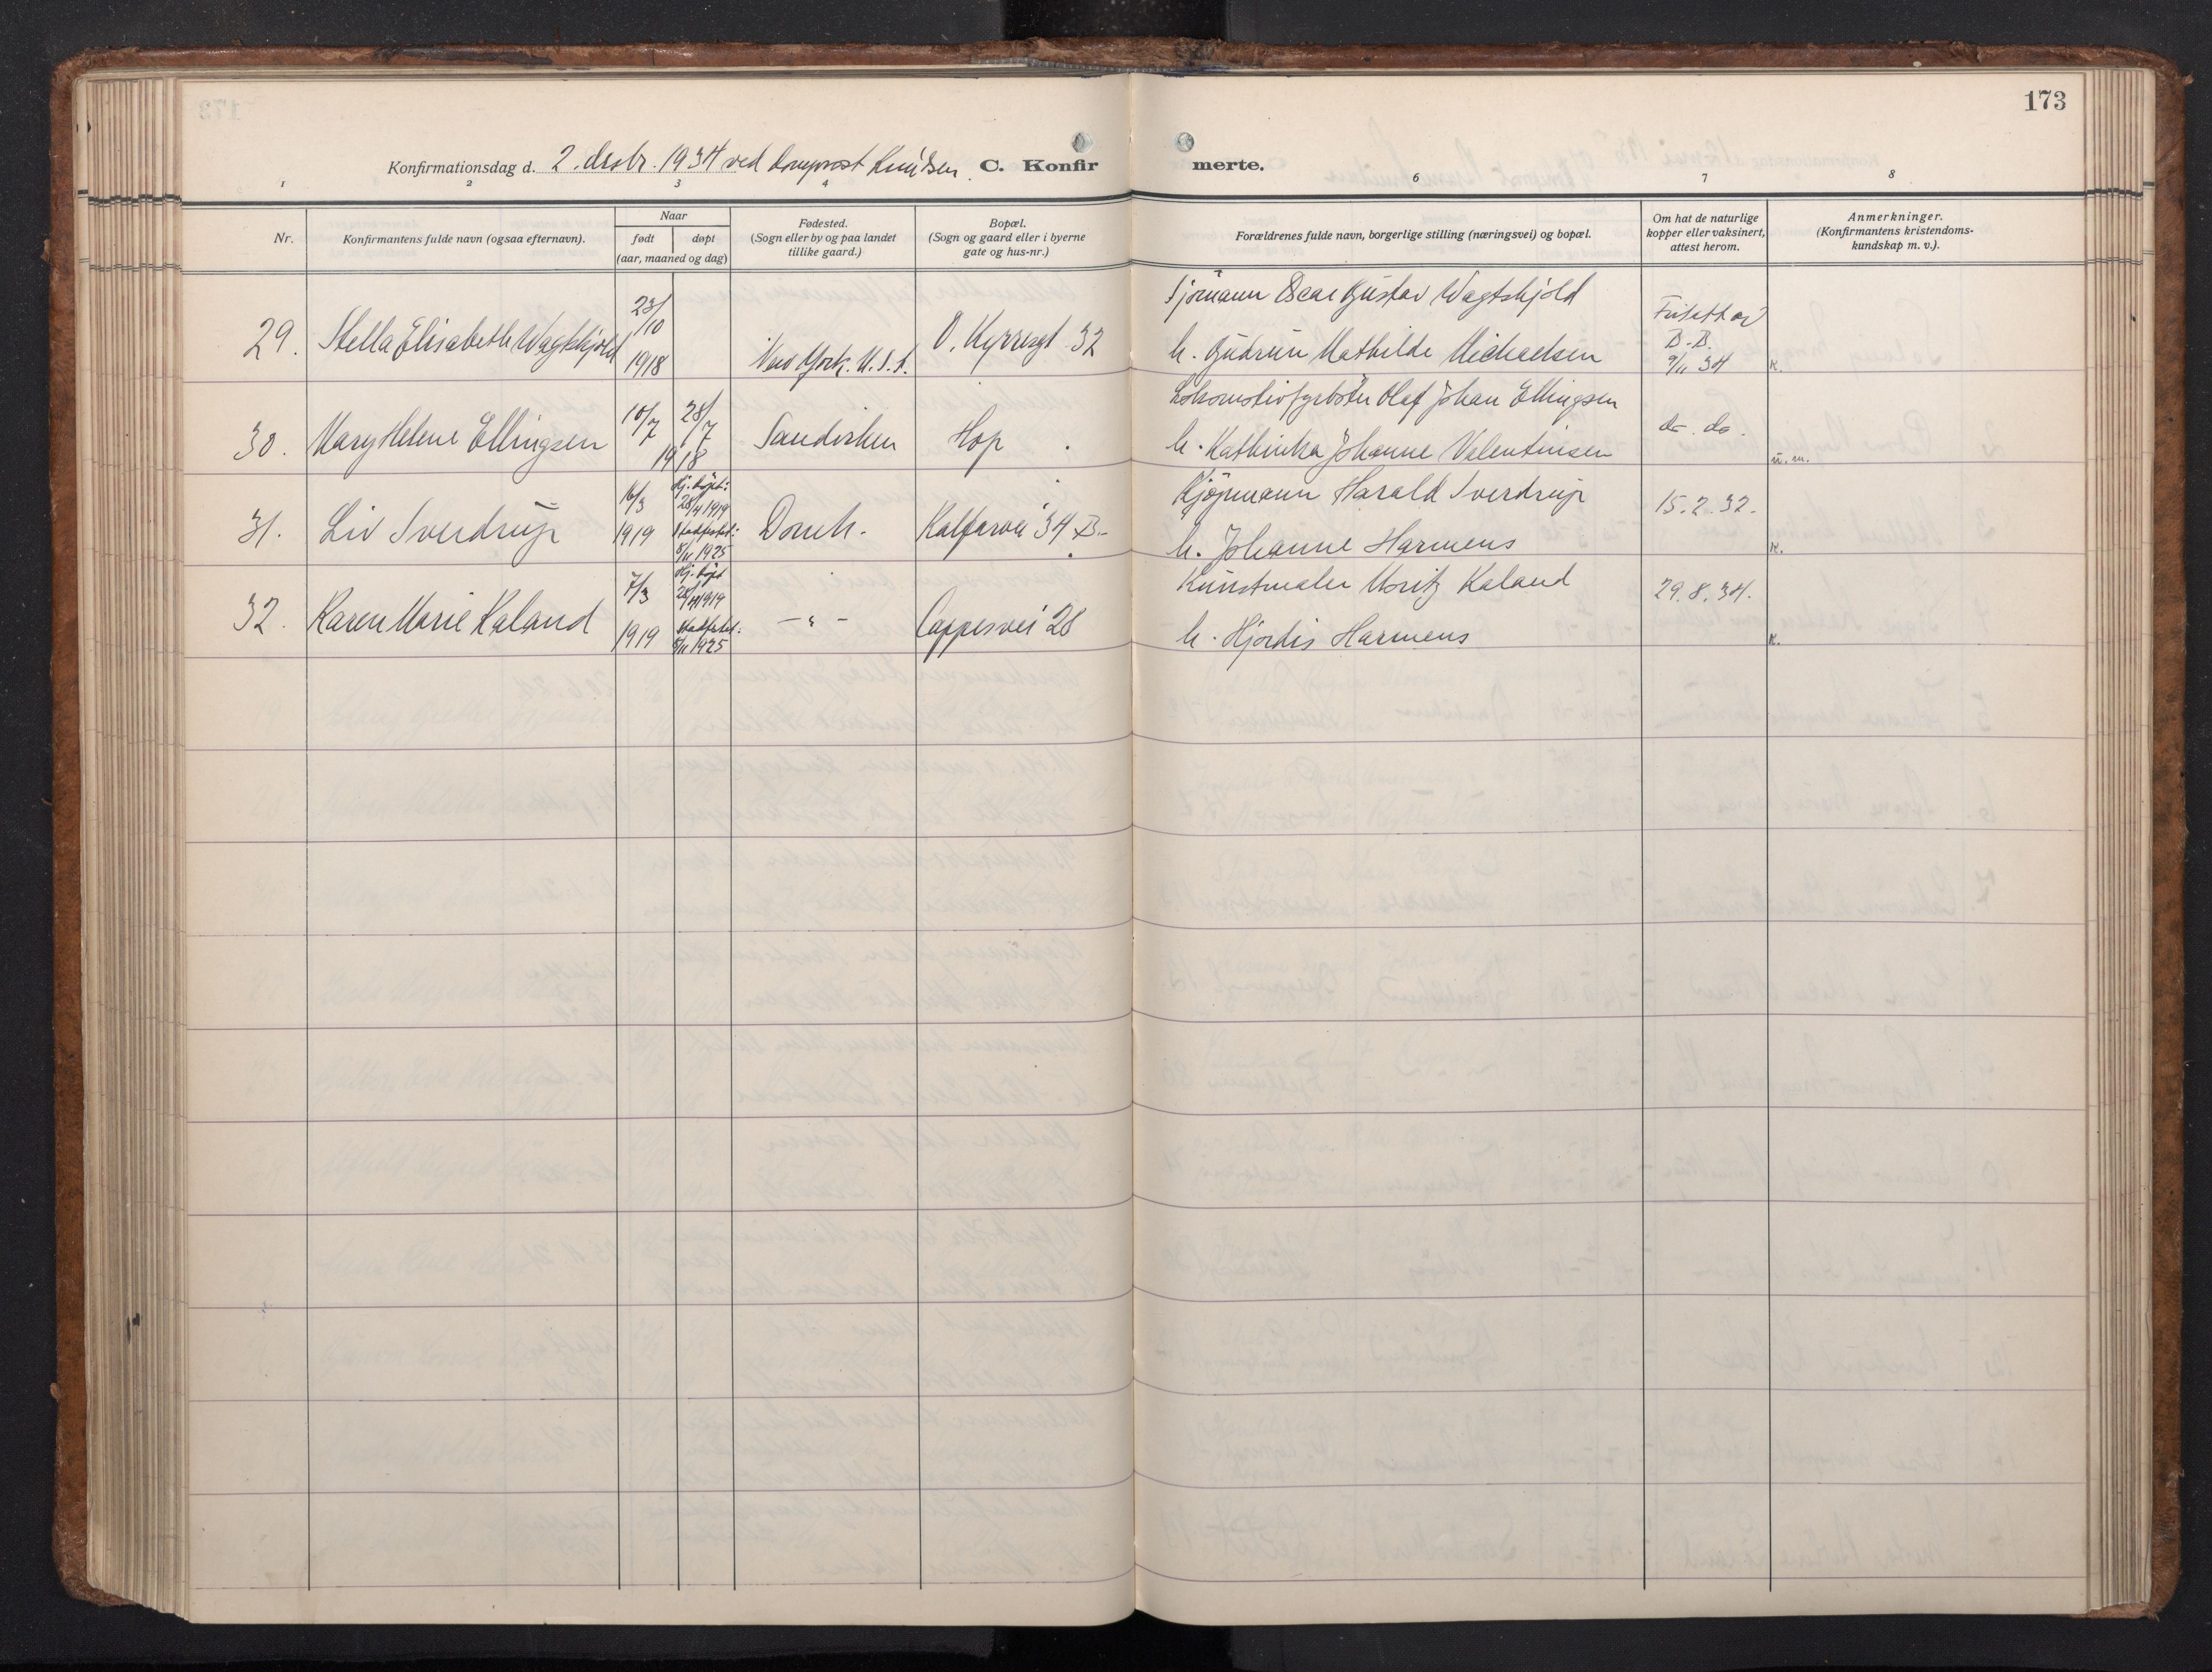 173
Konfirmationsdag d. 2. desbr. 1934 ved domprost Knudsen. C. Konfir merte.
1 2 3 4 6 7 8
Nr. Konfirmantens fulde navn (ogsaa efternavn). Naar født døpt (aar, maaned og dag) Fødested. (Sogn eller by og paa landet tillike gaard.) Bopæl. (Sogn og gaard eller i byerne gate og hus-nr.) Forældrenes fulde navn, borgerlige stilling (næringsvei) og bopæl. Om hat de naturlige kopper eller vaksinert, attest herom. Anmerkninger. (Konfirmantens kristendoms-kundskap m. v.).
29. Stella Elisabeth Wagtskjold 23/10 1918 New York. U.S.A. O. Kyrresgt 32 Sjømann Oscar Gustav Wagtskjold
h. Gudrun Mathilde Michaelsen Fritatt av B.B. 9/11 34 K.
30. Mary Helene Ellingsen 10/7 28/7 1918 Sandviken Hop. Lokomotivfyrbøter Olaf Johan Ellingsen
h. Kathinka Johanne Valentinsen do. do. u. m.
31. Liv Sverdrup 16/3 1919 Hj. døpt: 28/4 1919 Stadfestet: 8/11 1925 Domk. Kalfarvei 34 B. Kjøpmann Harald Sverdrup
h. Johanne Harmens 15.2.32. K.
32. Karen Marie Kaland 7/3 1919 Hj. døpt 28/4 1919 Stadfestet: 8/11 1925 - " - Cappesvei 28 Kunstmaler Moritz Kaland
h. Hjørdis Harmens 29.8.34. K.